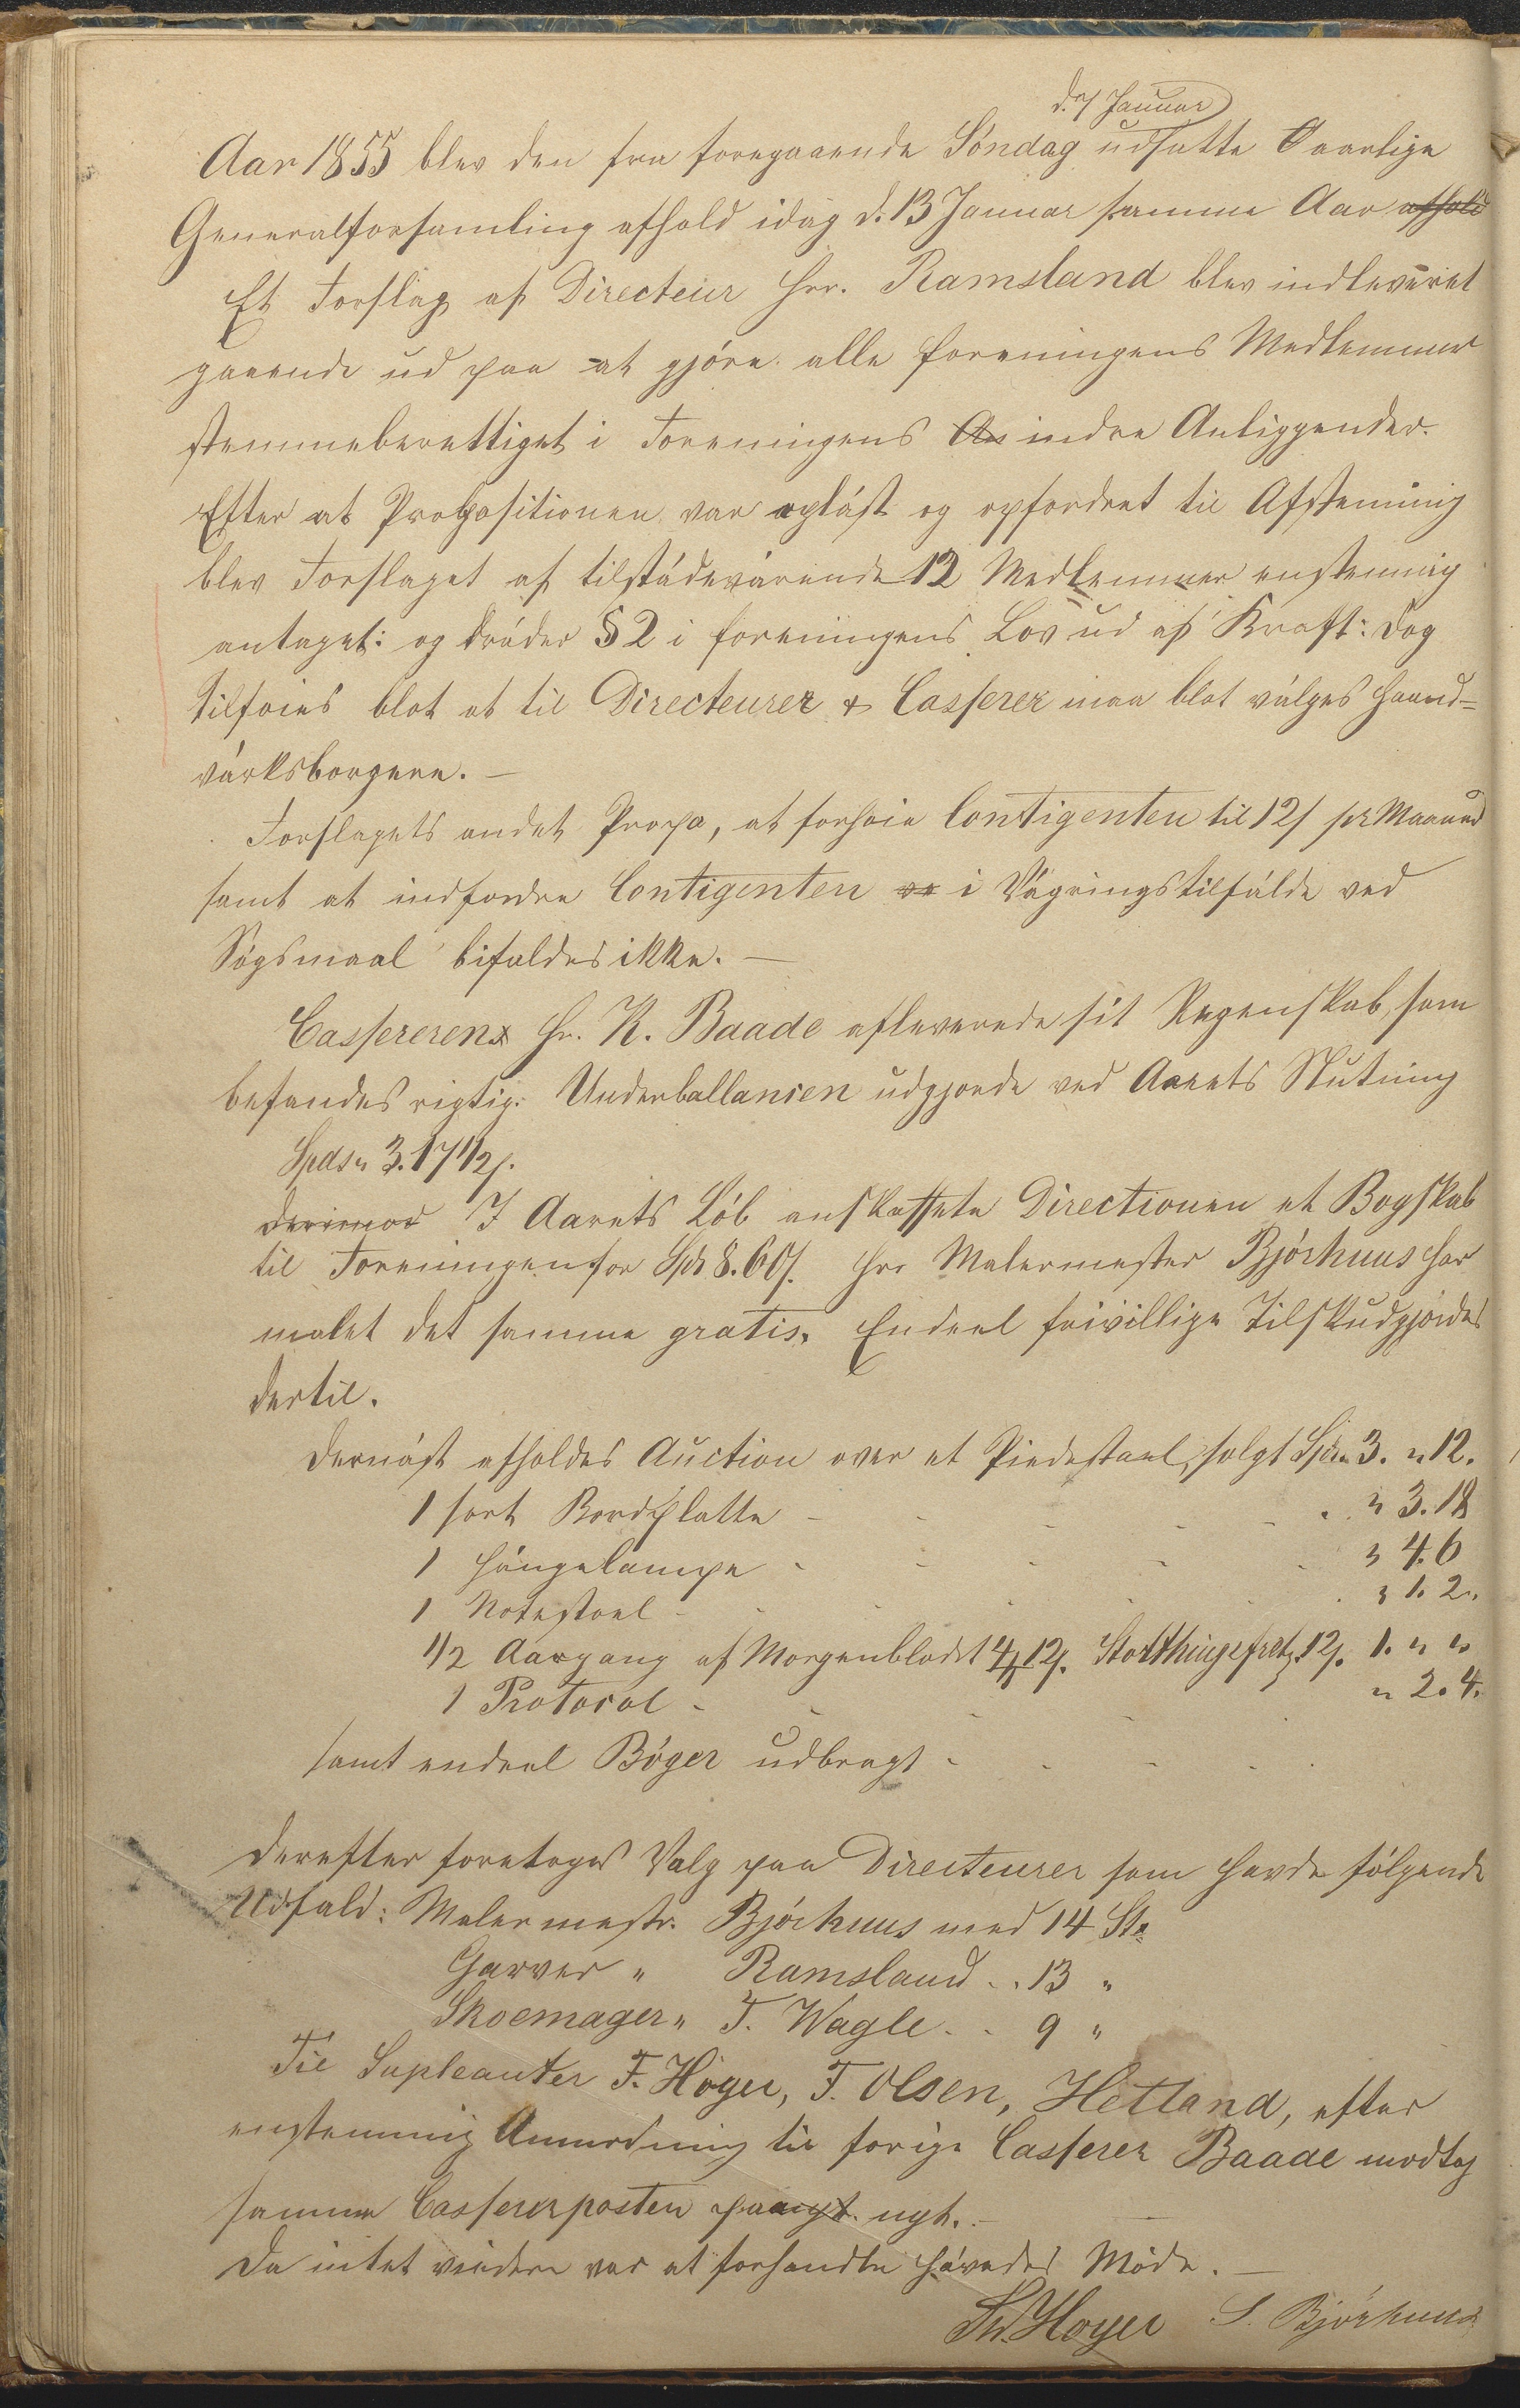 d. 7 Januar
Aar 1855 blev den fra foregaaende Söndag udsatte Aarlige
Generalforsamling afhold idag d. 13 Januar samme Aar afhold
Et Forslag af Directeur Hrr. Ramsland blev indleveret
gaaende ud paa at gjöre alle Foreningens Medlemmer
stemmeberettiget i Foreningens An indre Anliggender.
Efter at Propositionen var opläst og opfordret til Afstemning
blev Forslaget af tilstädevärende 12 Medlemmer enstemmig
antaget: og träder § 2 i Foreningens Lov ud af Kraft: Dog
tilföies blot at til Directeurer & Casserer maa blot välges Haand=
värksborgere. —
Forslagets andet Propo, at forhöie Contigenten til 12 s pr Maaned
samt at indfordre Contigenten ve i Vägringstilfälde ved
Sögsmaal bifaldes ikke. —
Cassereren Hr. K. Baade afleverede sit Regenskab, som
befandes rigtig: Underballansen udgjorde ved Aarets Slutning
Spds 3. 17 1/2 s.
Derimod I Aarets Löb anskaffete Directionen et Bogskab
til Foreningen for Spds 8. 60 s. Hrr Malermester Björhuus har
malet det samme gratis. Endeel frivillige Tilskud gjördes
dertil.
Dernäst afholdes Auction over et Piedestael, solgt Spd. 3. " 12.
1 sort Bordplatte - - - - - " 3. 18
1 Hängelampe - - - - - " 4. 6
1 Notestoel - - - - - " 1. 2 "
1/2 Aargang af Morgenbladet 12 s. Storthingsfret 12 s. 1. " "
1 Protocol - - - - " 2. 4.
samt endeel Böger udbragt - - - -
Derefter foretoges Valg paa Directeurer som havde fölgende
Udfald: Malermestr. Björhuus med 14 St.
Garver " Ramsland .. 13 "
Skoemager " T. Wagle .. 9 "
Til Supleanter F. Höyer, T. Olsen, Hetland, efter
enstemmig Anmodning til forige Casserer Baade modtog
samme Cassererposten paanyt nyt. —
Da intet videre var at forhandle hävedes Möde. —
Th. Hoyer S. Bjørhuus